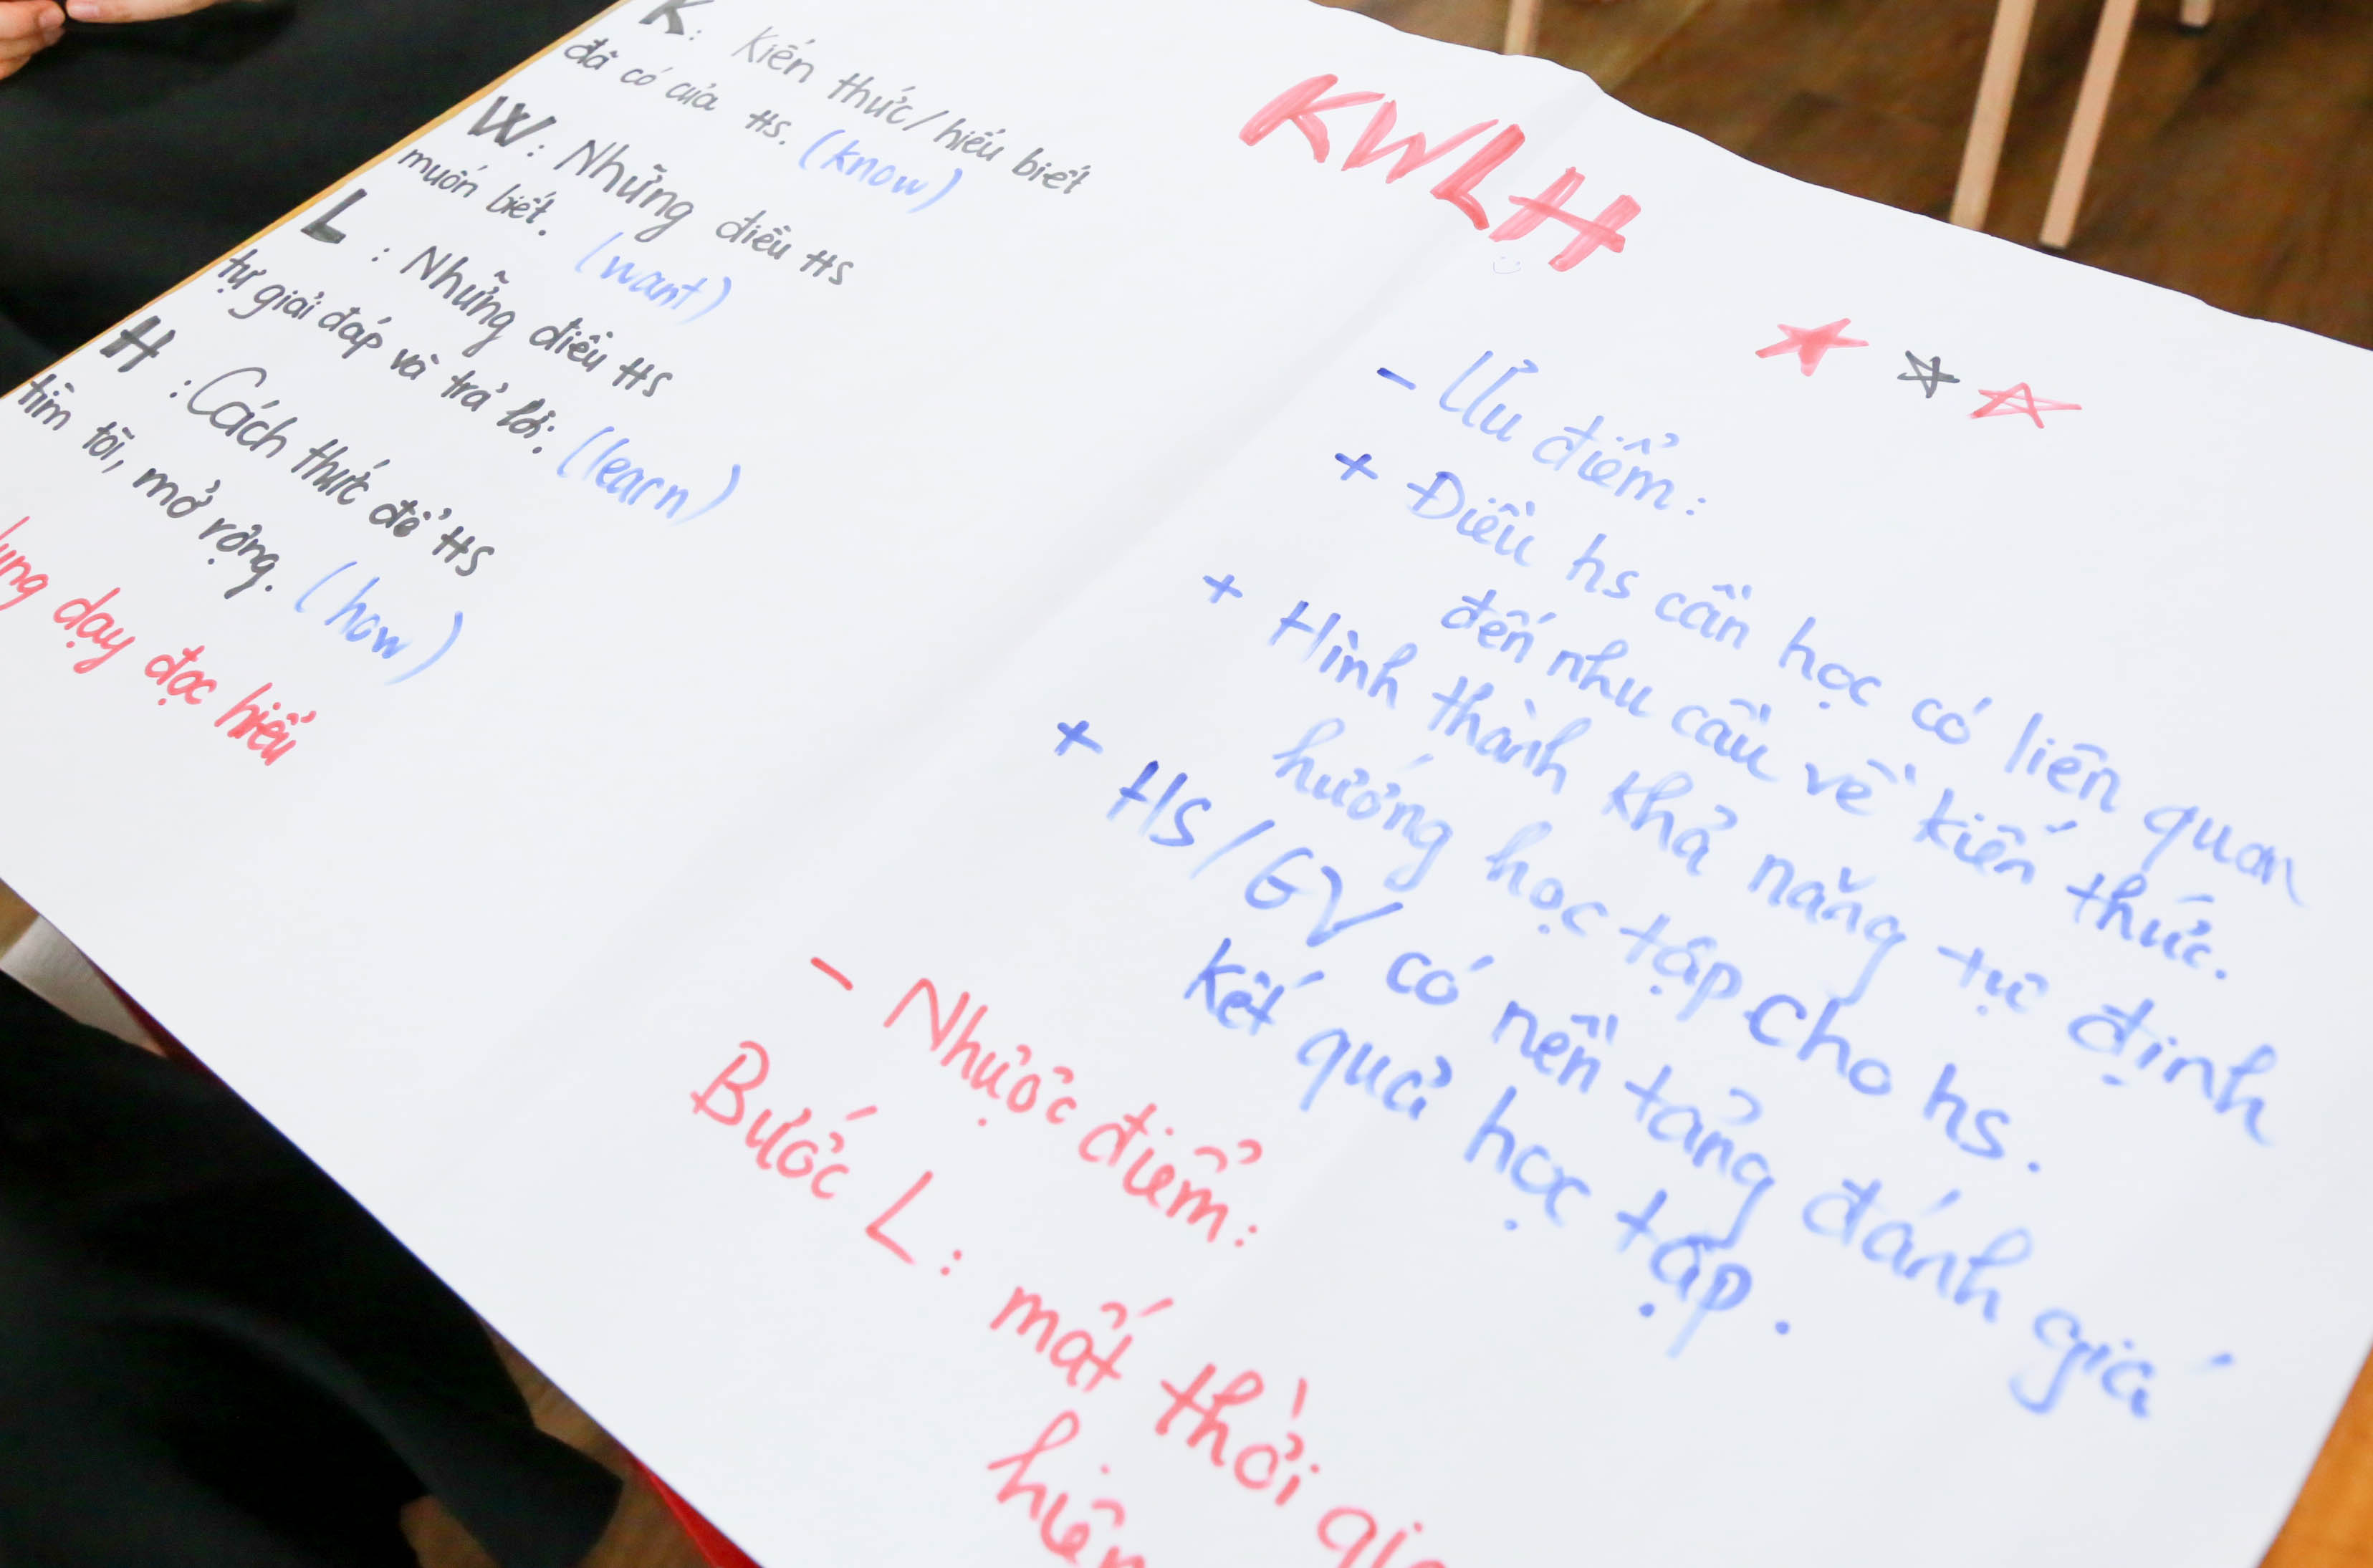 KWLH
K: Kiến thức/hiểu biết
đã có của HS. (know)
W: Những điều HS
muốn biết. (want)
L: Những điều HS
tự giải đáp và trả lời. (learn)
H: Cách thức để HS
tìm tòi, mở rộng. (how)
dạy đọc hiểu
- Ưu điểm:
+ Điều hs cần học có liên quan
đến nhu cầu về kiến thức.
+ Hình thành khả năng tự định
hướng học tập cho hs.
+ HS/GV có nền tảng đánh giá
kết quả học tập.
- Nhược điểm:
Bước L: mất thời